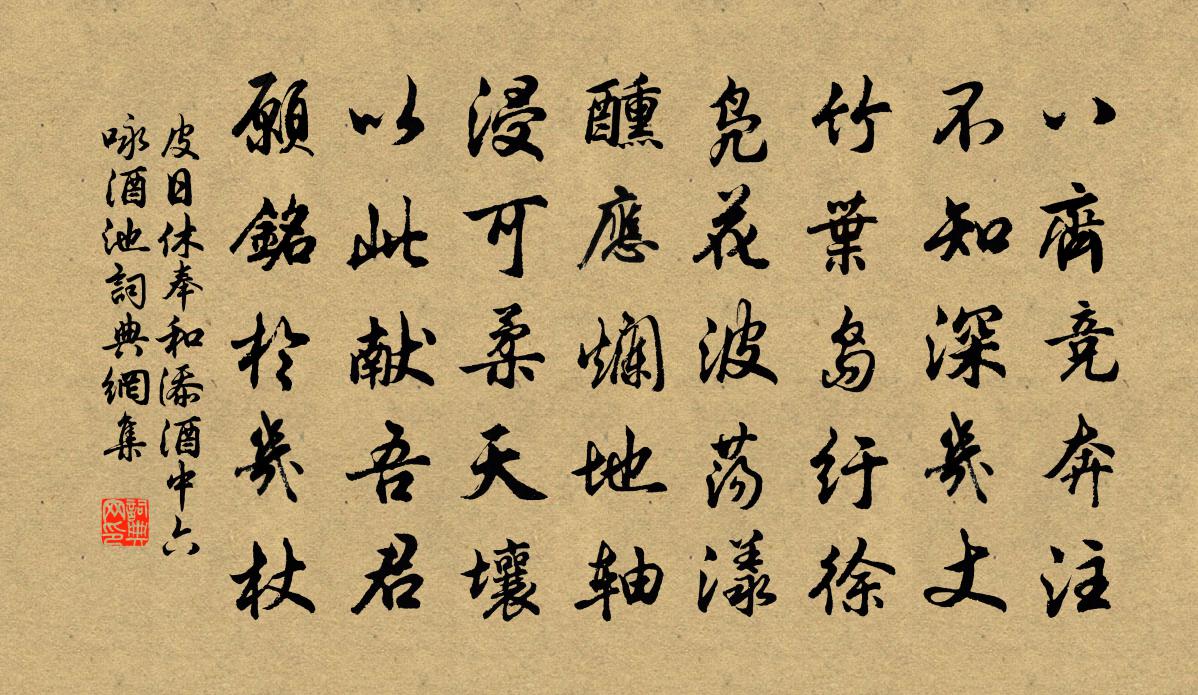 八齊竞奔注
不知深幾丈
竹葉島紆徐
鳧花波蕩漾
醺應爛地轴
浸可柔天壤
以此献吾君
願銘於幾杖
皮日休奉和添酒中六
咏酒池詞典網集
詞典網印